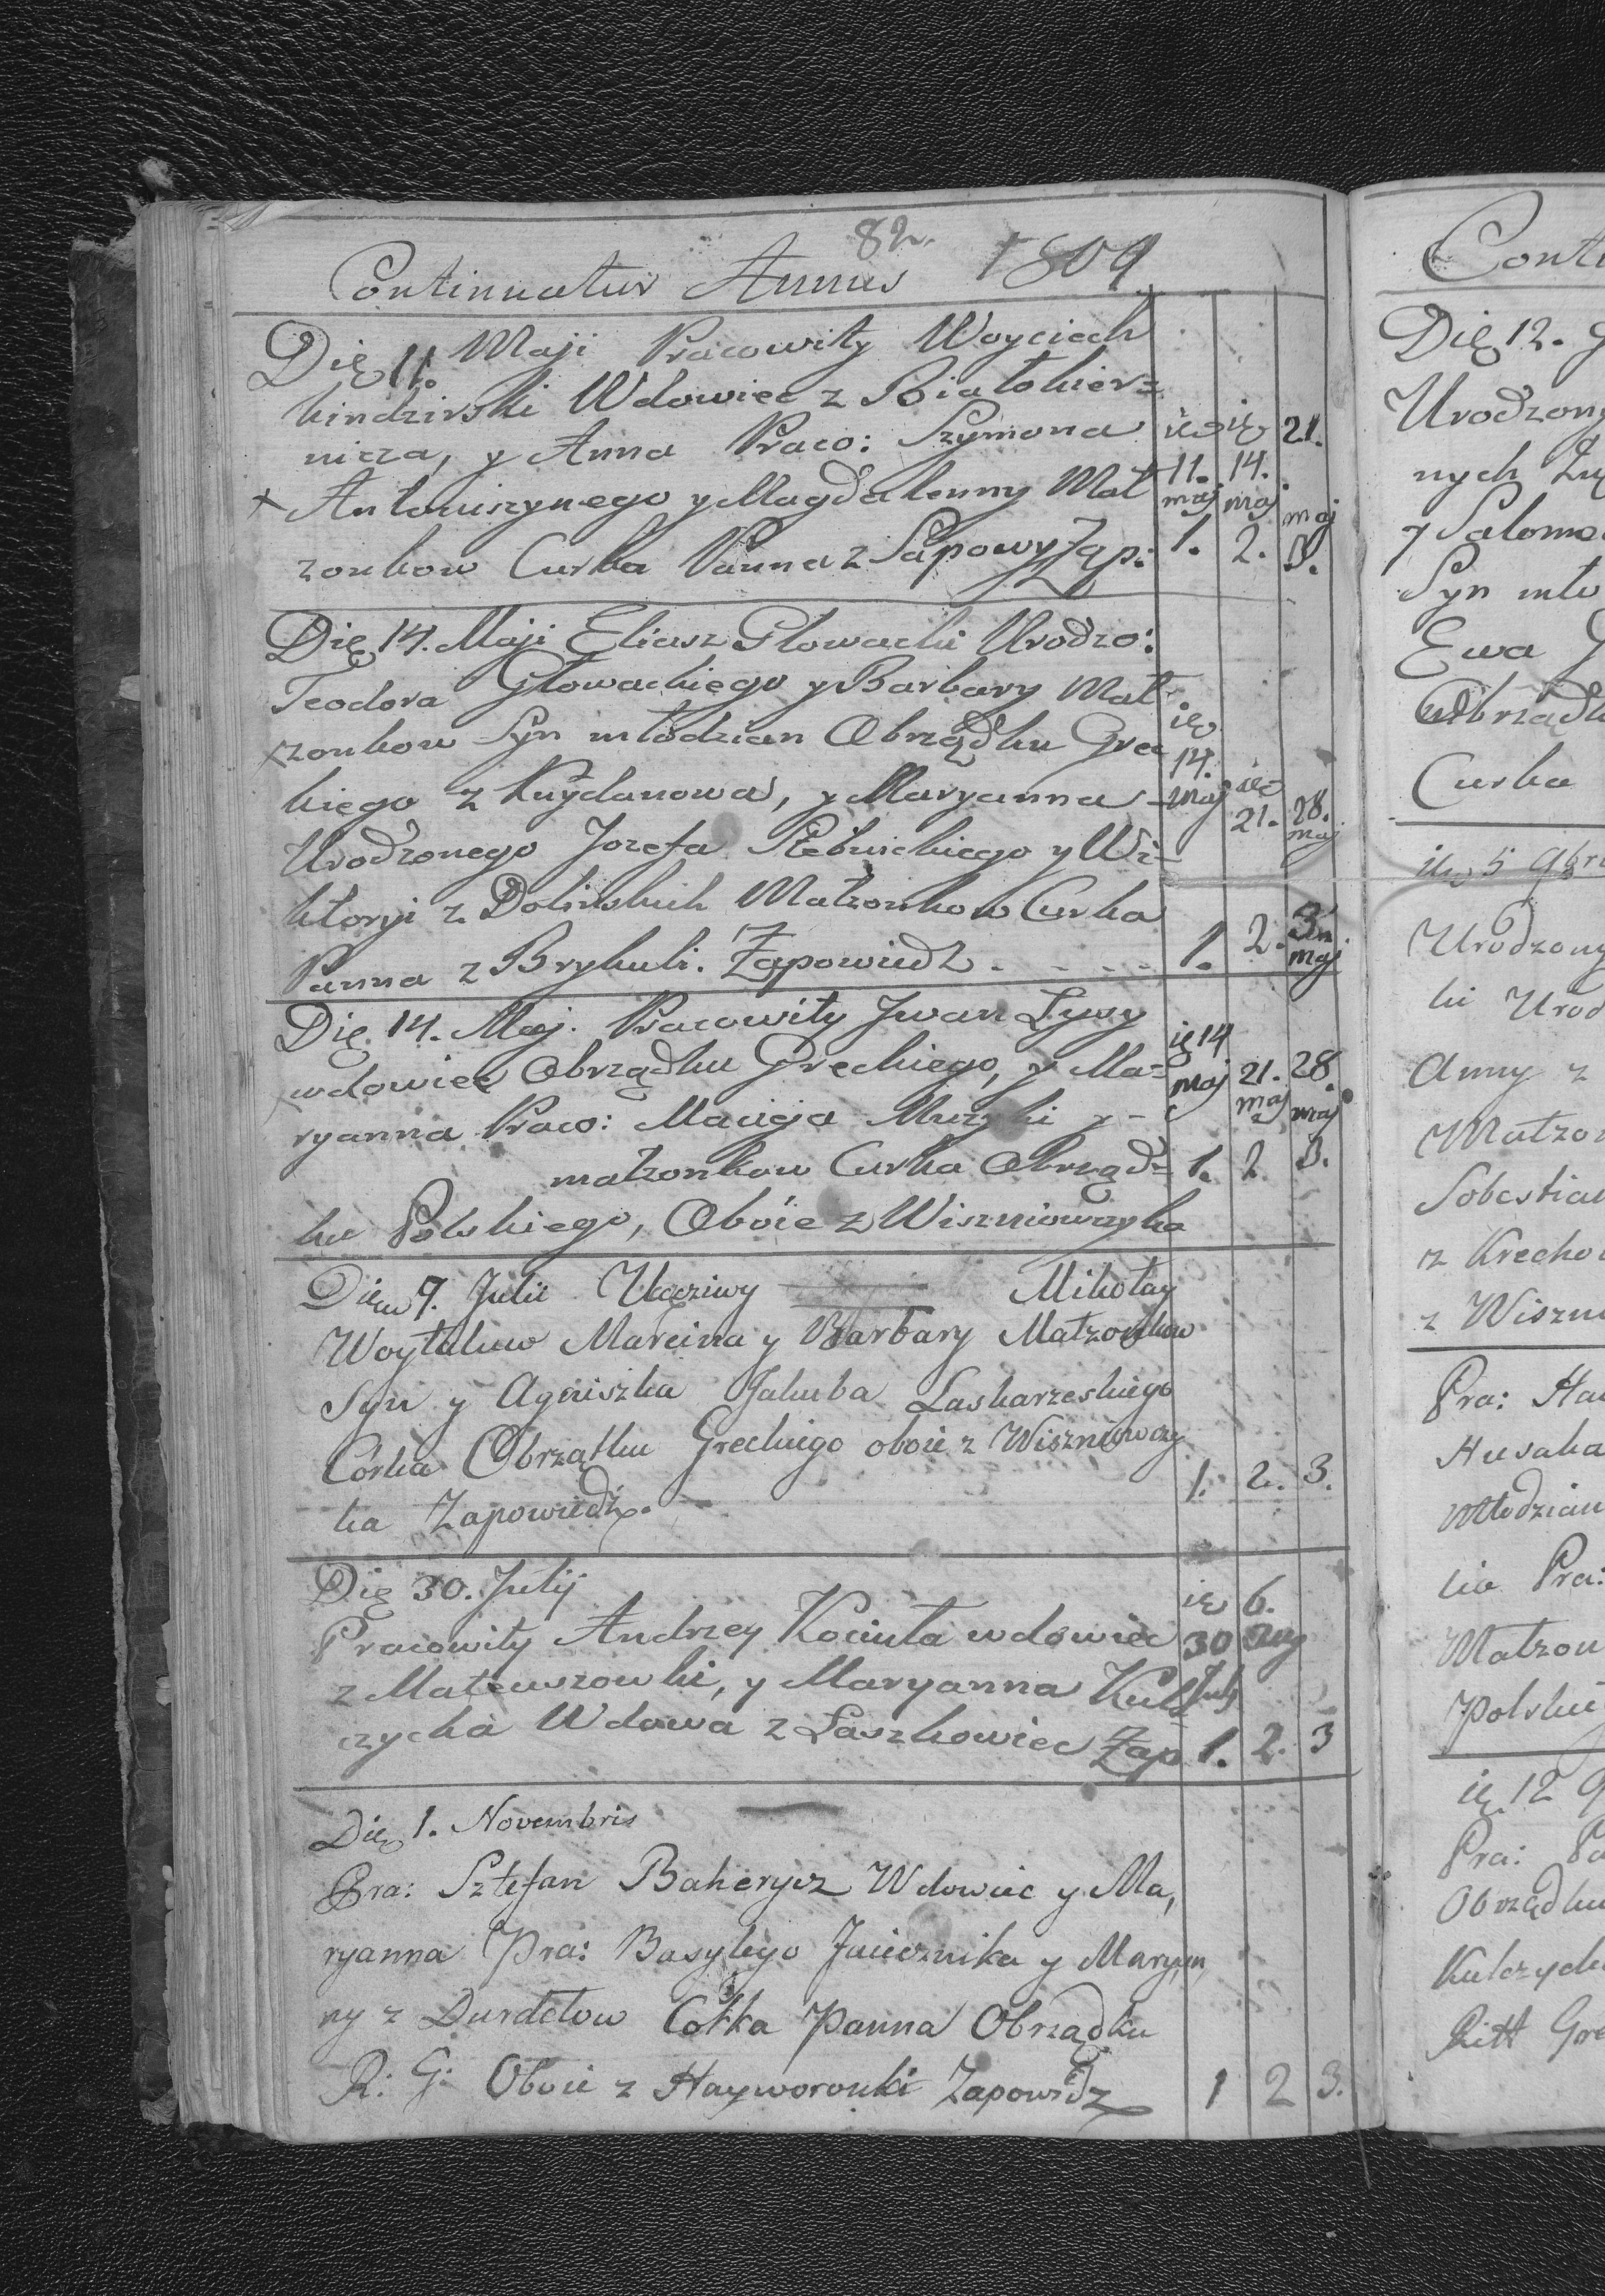 82.
Continuatur Annus 1809
Die 11. Maji Pracowity Woyciech
kindzirski Wdowiec z Białokier=
nicza, y Anna Praco: Szymona
+ Antoniszynego y Magdalenny Mał
zonkow Curka Panna z Sapowy Zap:
ie 11. maj 1.
ie 14. maj 2.
21. maj 3.
Die 14. Maji Eliasz Głowacki Urodzo:
Teodora Głowackiego y Barbary Mał
zonkow Syn młodzian Obrządku Grec
kiego z Kuydanowa, y Maryanna
Urodzonego Jozefa y Wi-
ktoryi z Dolinskich Małzonkow Curka
Panna z Brykuli. Zapowiedz . - - - -
ie 14. maj 1.
ie 21. 2.
28. maj 3
maj
Die. 14. Maj. Pracowity Jwan Lysy
wdowiec Obrządku Greckiego, y Ma=
ryanna Praco: Macieja Muzyki y -
małzonkow Curka Obrząd=
ku Polskiego, Oboie z Wiszniowczyka
ie 14 maj 1.
21. maj 2.
28. maj 3.
Die 9. Julii Uczciwy Mikołay
Woytaluw Marcina y Barbary Małzonkow
Syn y Agniszka Jakuba Laskarzeskiego
Corka Obrządku Greckiego oboie z Wiszniowczy
ka Zapowiedź. 1. 2. 3.
Die 30. Julij
Pracowity Andrzey Kociuła wdowiec
z Mateuszowki, y Maryanna Kul
czycka Wdowa z Laszkowiec Zap
ie 30 July 1.
6. Aug 2.
3
Die 1. Novembris
Pra: Sztefan Baherycz Wdowiec y Ma,
ryanna Pra: Basylego Jacieznika y Maryan
ny z Durdełow Corka Panna Obrządku
R: G: Oboie z Hayworonki Zapowidz 1 2 3.
Conti
Die 12.
Urodzony
nych
y Salome
Syn mło
Ewa
Obrządk
Curka
ie 5 9bri
Urodzony
ki Urod
Anny z
Małzon
Sobestian
z Krecho
z Wiszni
Pra: Ha
Husaka
Młodzian
ka Pra:
Małzon
Polski
ie 12 9
Pra: Pa
Obrządku
Kulczyck
Ritt Gre